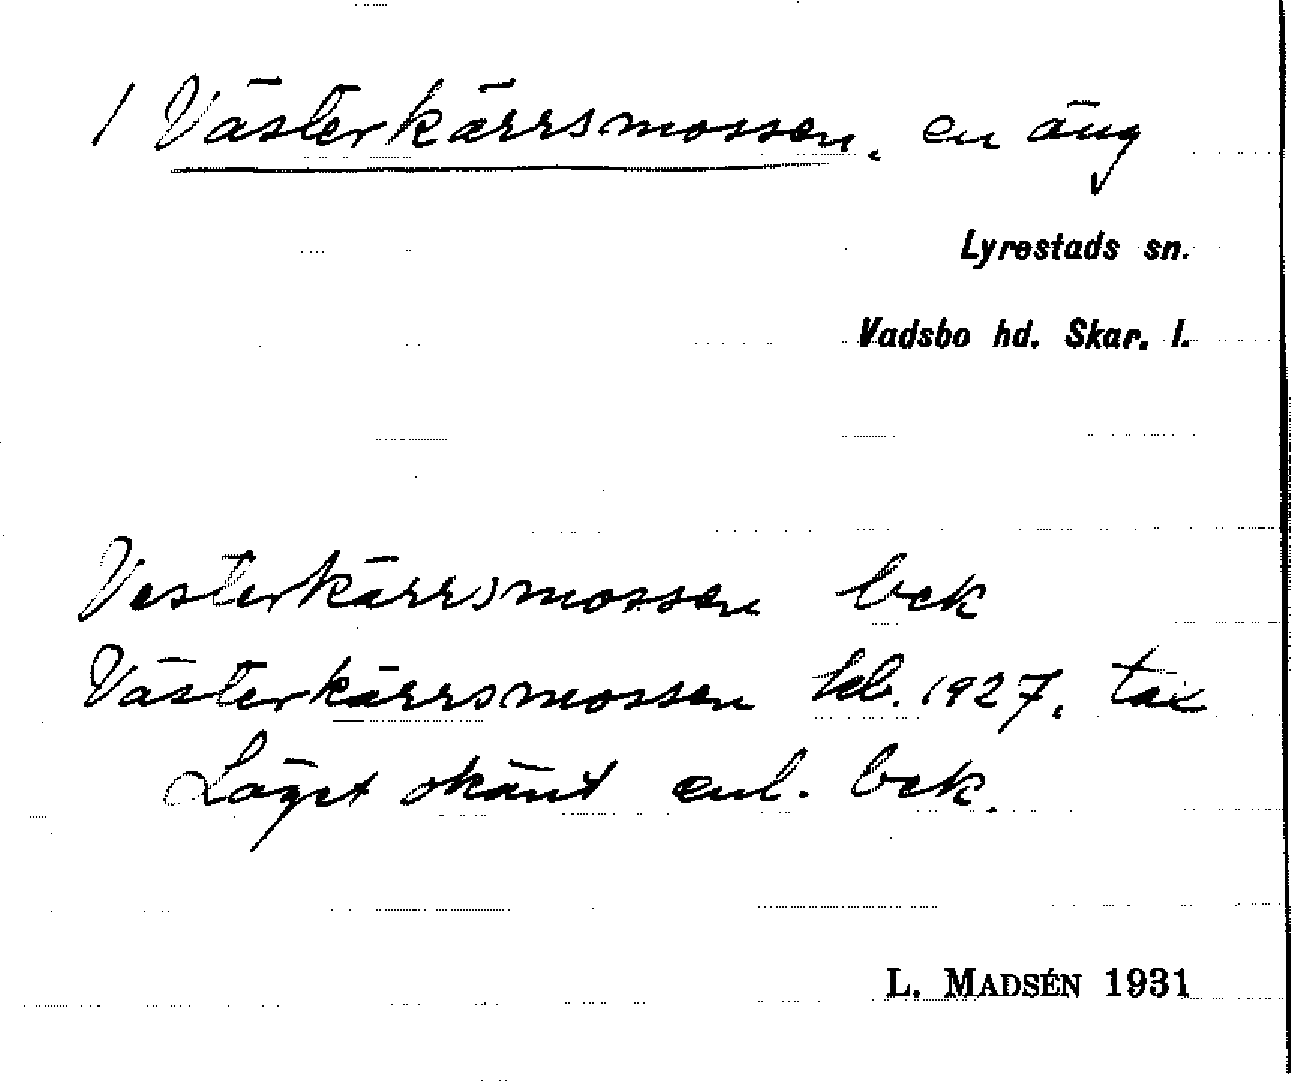 / Västerkärrsmossen. en äng
Lyrestads sn.
Vadsbo hd. Skar. l.
Vesterkärrsmossen bek
Västerkärrsmossen kb. 1927. tax
Läget okänt enl. bek.
L. MADSÉN 1931